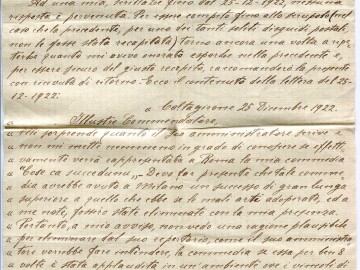 ad una mia, scrittale fino dal 25-12-1922, nessuna
risposta è pervenuta. Per essere compito fino allo scrupolo (nel
caso che la precedente, per uno dei tanti soliti disguidi postali,
non le fosse stata recapitata) torno ancora una volta a ripe-
terle quanto mi avevo onorato esporle nella precedente
per essere sicuro del giusto recapito, raccomanderò la presente
con ricevuta di ritorno. Ecco il contenuto della lettera del 25-
12-1922:
" Caltagirone 25 Dicembre 1922.
" Illustre Commendatore,
" Mi sorprende quanto il suo amministratore scrive e
" non mi mette nemmeno in grado di conoscere se effetti-
" vamente verrà rappresentata a Roma la mia commedia
" "Cose ca succedunu". Devo far presente che tale comme-
" dia avrebbe avuto a Milano un successo di gran lunga
" superiore a quello che ebbe se le mali arti adoprate, ed a
" me note, fossero state eliminate con la mia presenza.
" Pertanto, a mio avviso, non vedo una ragione plausibile
" per eliminare dal suo repertorio, come il suo amministra-
" tore vorrebbe fare intendere, la commedia se essa per ben 2
" volte è stata applaudita in un ambiente ove i vincoli di